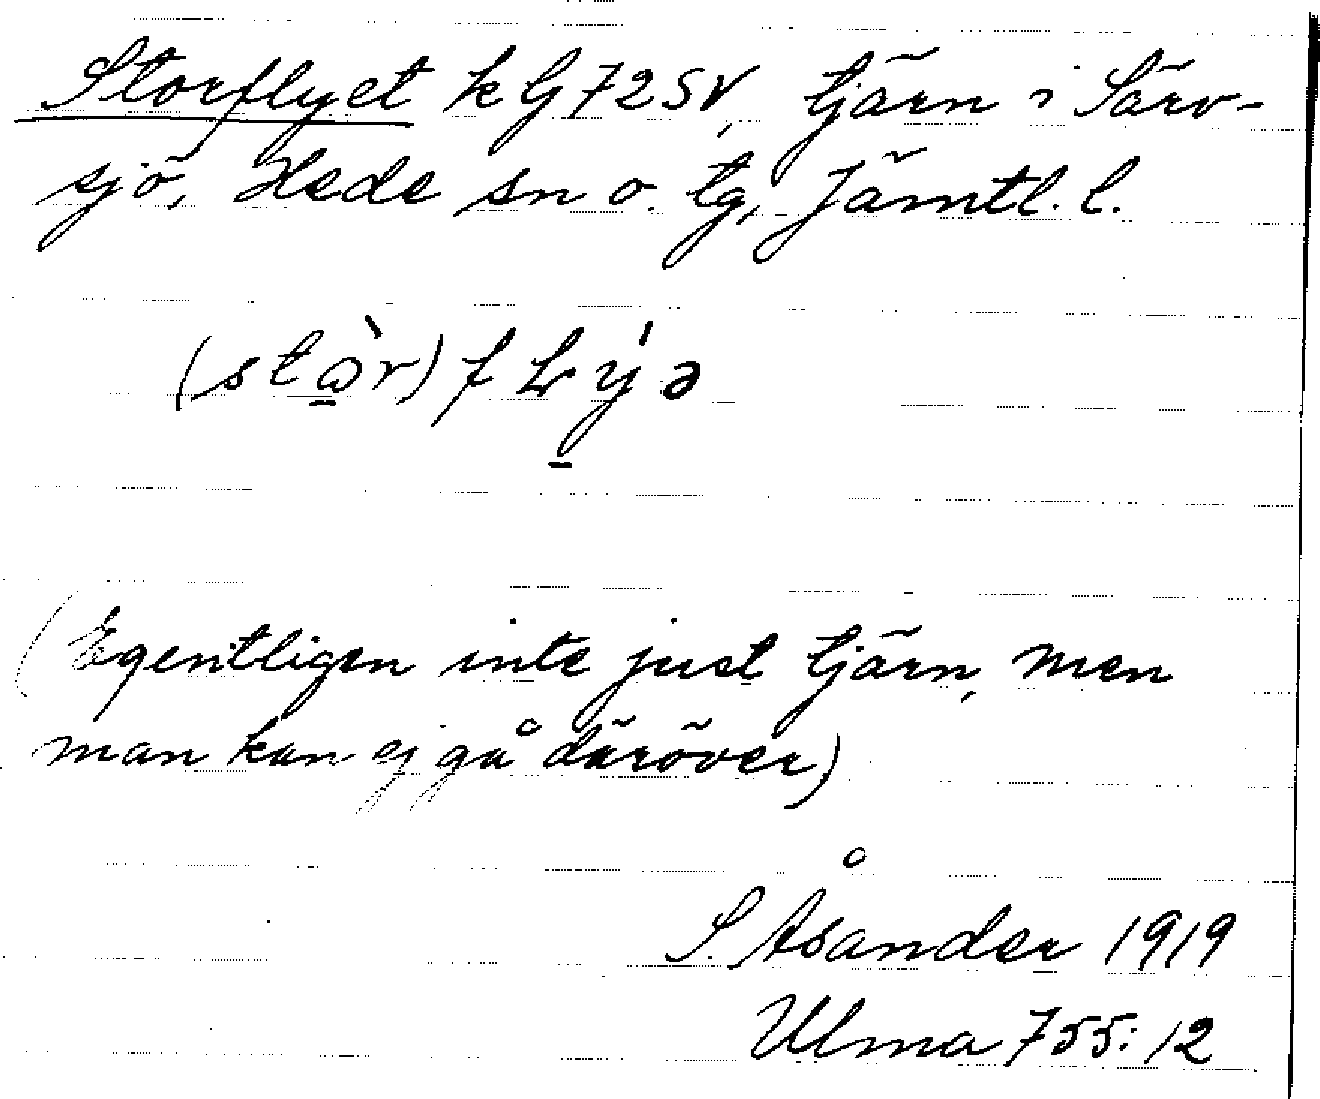 Storflyet kG72SV, tjärn i Särv-
sjö, Hede sn o. tg, Jämtl. l.
(stὼ̠r)fʟý̠ə
(Egentligen inte just tjärn, men
man kan ej gå däröver)
S. Åsander 1919
Ulma 755:12